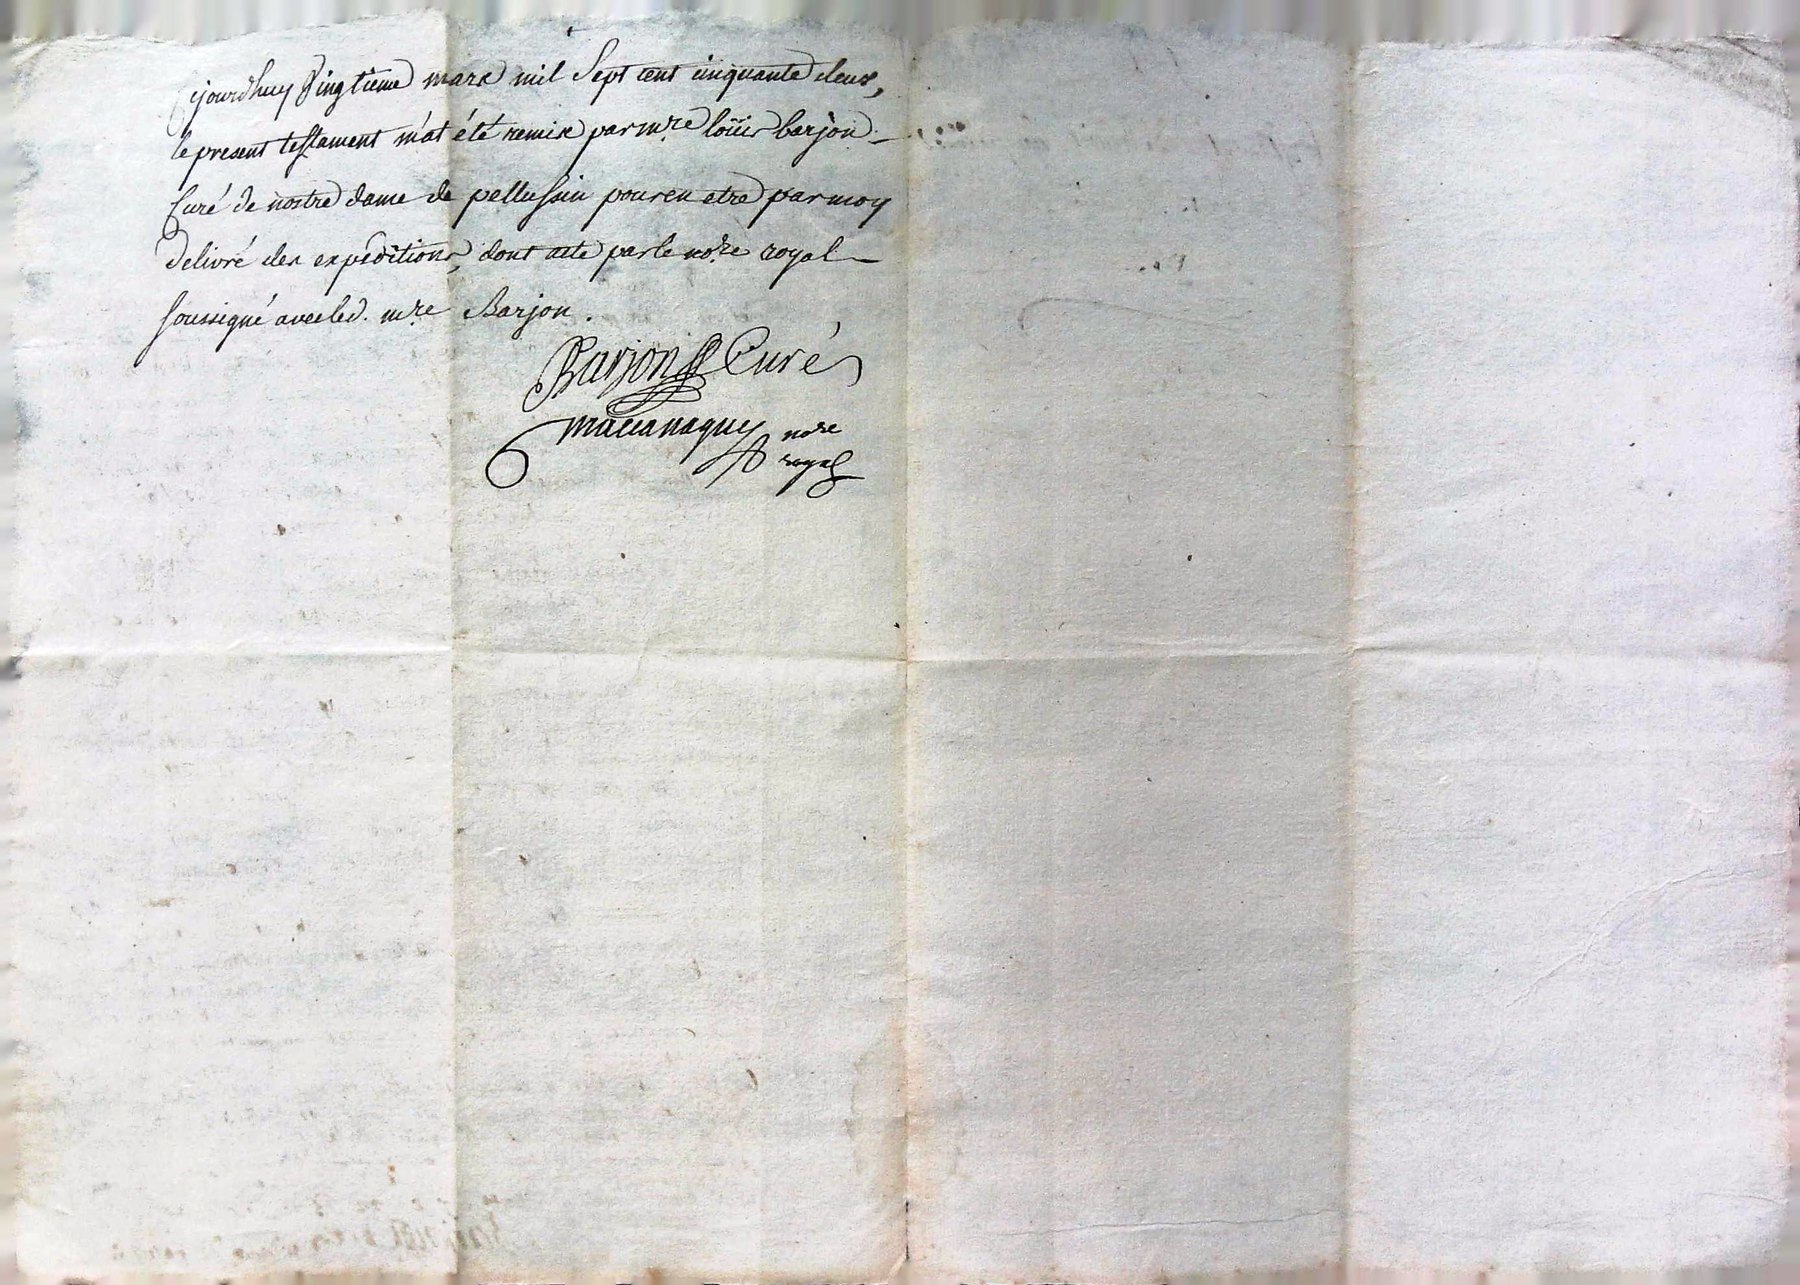 cejourdhuy vingtieme mars mil sept cent cinquante deux,
le present testament m'at été remis par mre loüis barjon
Curé de nostre dame de pellussin pour en etre par moy
delivré des expeditions, dont acte par le nore royal
soussigné avec led. mre Barjon.
Barjon Curé
maccanaquy nore
royal